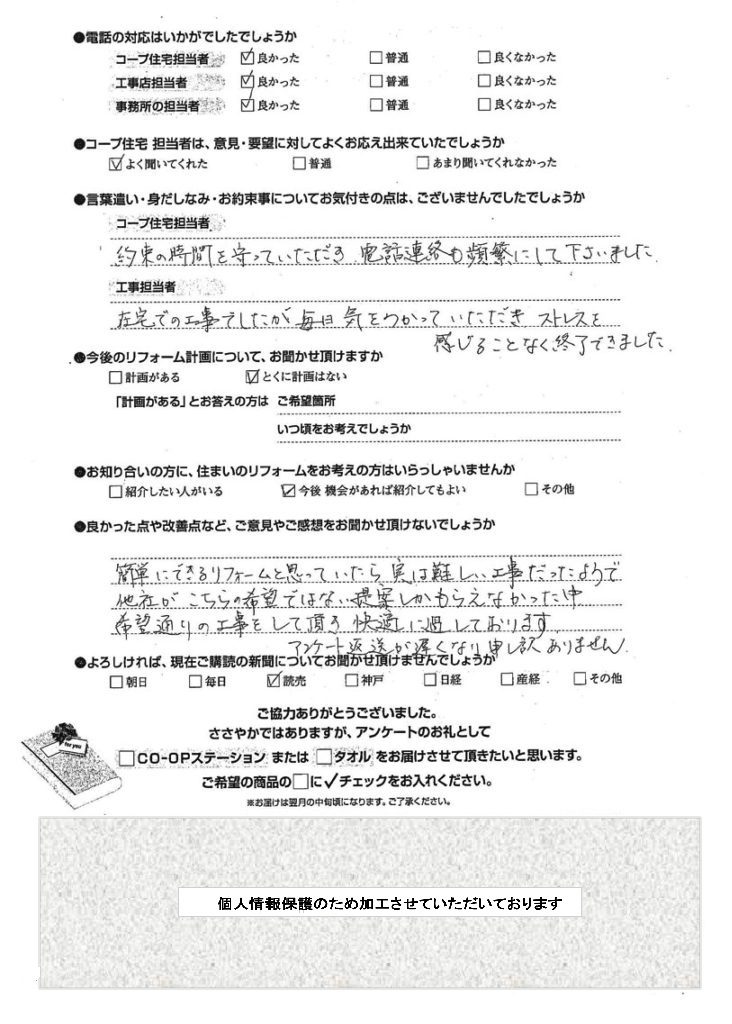 ●電話の対応はいかがでしたでしょうか
コープ住宅担当者 ☑良かった □普通 □良くなかった
工事店担当者 ☑良かった □普通 □良くなかった
事務所の担当者 ☑良かった □普通 □良くなかった
●コープ住宅 担当者は、意見・要望に対してよくお応え出来ていたでしょうか
☑よく聞いてくれた □普通 □あまり聞いてくれなかった
●言葉遣い・身だしなみ・お約束事についてお気付きの点は、ございませんでしたでしょうか
コープ住宅担当者
約束の時間を守っていただき 電話連絡も頻繁にして下さいました
工事担当者
在宅での工事でしたが毎日気をつかっていただき ストレスを
感じることなく終了できました.
●今後のリフォーム計画について、お聞かせ頂けますか
□計画がある ☑とくに計画はない
「計画がある」とお答えの方は ご希望箇所
いつ頃をお考えでしょうか
●お知り合いの方に、住まいのリフォームをお考えの方はいらっしゃいませんか
□紹介したい人がいる ☑今後 機会があれば紹介してもよい □その他
●良かった点や改善点など、ご意見やご感想をお聞かせ頂けないでしょうか
簡単にできるリフォームと思っていたら実は難しい工事だったようで
他社がこちらの希望ではない提案しかもらえなかった中
希望通りの工事をして頂き快適に過しております
アンケート返送が遅くなり申し訳ありません.
●よろしければ、現在ご購読の新聞についてお聞かせ頂けませんでしょうか
□朝日 □毎日 ☑読売 □神戸 □日経 □産経 □その他
ご協力ありがとうございました。
ささやかではありますが、アンケートのお礼として
for you
□CO-OPステーション または □タオル をお届けさせて頂きたいと思います。
ご希望の商品の□に✓チェックをお入れください。
※お届けは翌月の中旬頃になります。ご了承ください。
個人情報保護のため加工させていただいております